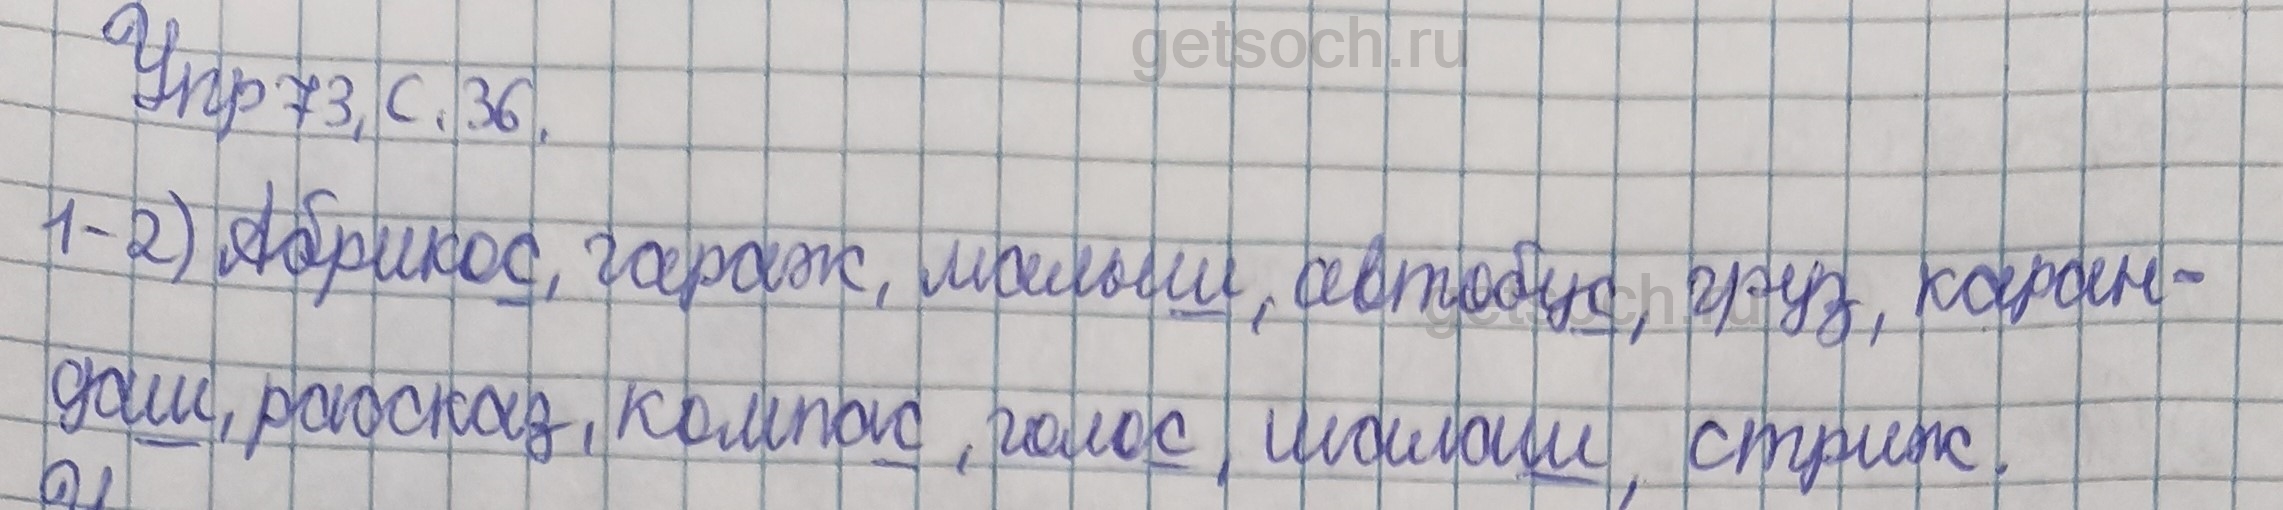 getsoch.ru
Упр 73, с. 36.
1-2) Абрикос, гараж, малыш, автобус, груз, каран-
getsoch.ru
даш, рассказ, компас, голос, шалаш, стриж.